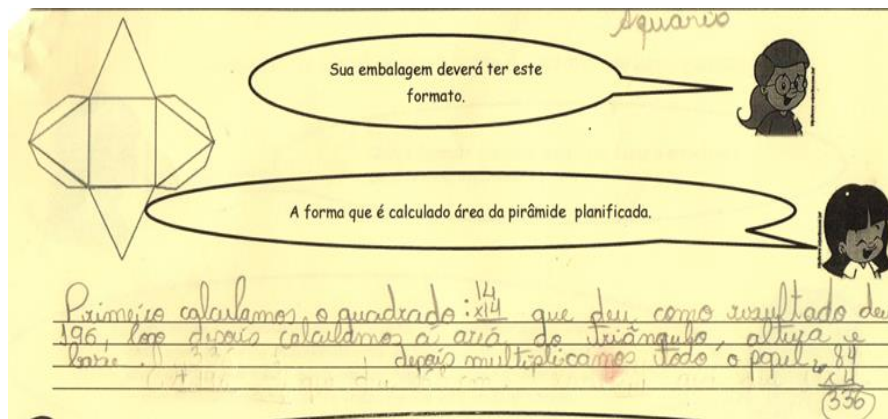 Aquario
Sua embalagem deverá ter este
formato.
A forma que é calculado área da pirâmide planificada.
Primeiro calculamos o quadrado: 14 x14 que deu como resultado deu
196, logo depois calculamos a ariá do triângulo, altura e
base. depois multiplicamos todo o papel 84
x 4
336